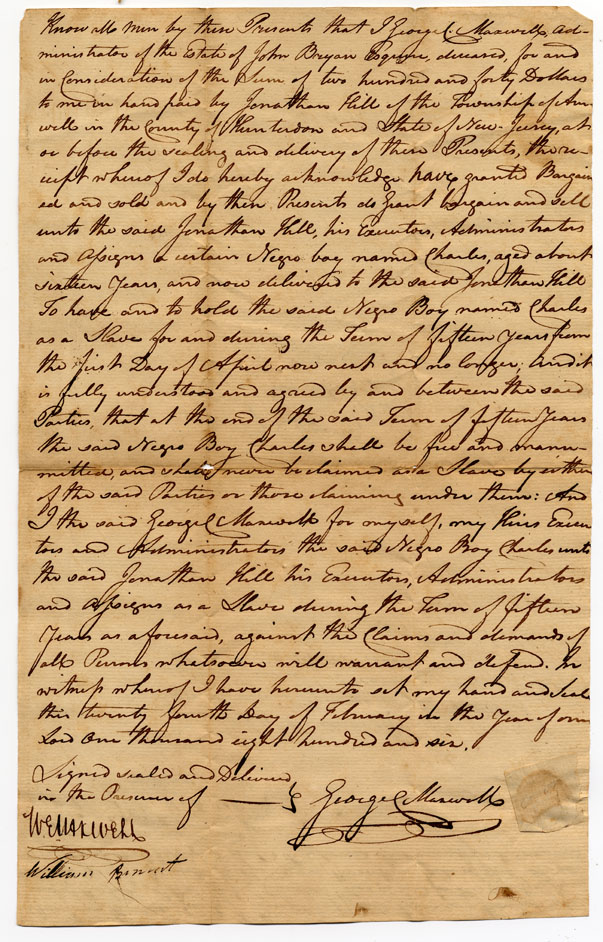 Know all Men by these Presents that I George C. Maxwell, Ad-
ministrator of the Estate of John Bryan Esquire, deceased, for and
in Consideration of the Sum of two hundred and forty Dollars
to me in hand paid by Jonathan Hill of the Township of Am-
well in the County of Hunterdon and State of New-Jersey, at
or before the sealing and delivery of these Presents, the re-
ceipt whereof I do hereby acknowledge have granted Bargain
ed and sold and by these Presents do Grant bargain and sell
unto the said Jonathan Hill, his Executors, Administrators
and Assigns a certain Negro boy named Charles, aged about
sixteen Years, and now delivered to the said Jonathan Hill
To have and to hold the said Negro Boy named Charles
as a Slave for and during the Term of fifteen Years from
the first Day of April now next and no longer; and it
is fully understood and agreed by and between the said
Parties, that at the end of the said Term of fifteen Years
the said Negro Boy Charles shall be free and manu-
mitted, and shall never be claimed as a Slave by either
of the said Parties or those claiming under them: And
I the said George C Maxwell for myself, my Heirs Execu
tors and Administrators the said Negro Boy Charles unto
the said Jonathan Hill his Executors, Administrators
and Assigns as a Slave during the Term of fifteen
Years as aforesaid, against the Claims and demands of
all Persons whatsoever will warrant and defend. In
witness whereof I have hereunto set my hand and Seal
this twenty fourth Day of February in the Year of our
Lord One thousand eight hundred and six.
Signed sealed and Delivered
in the Presence of
George C Maxwell
W E Maxwell
William